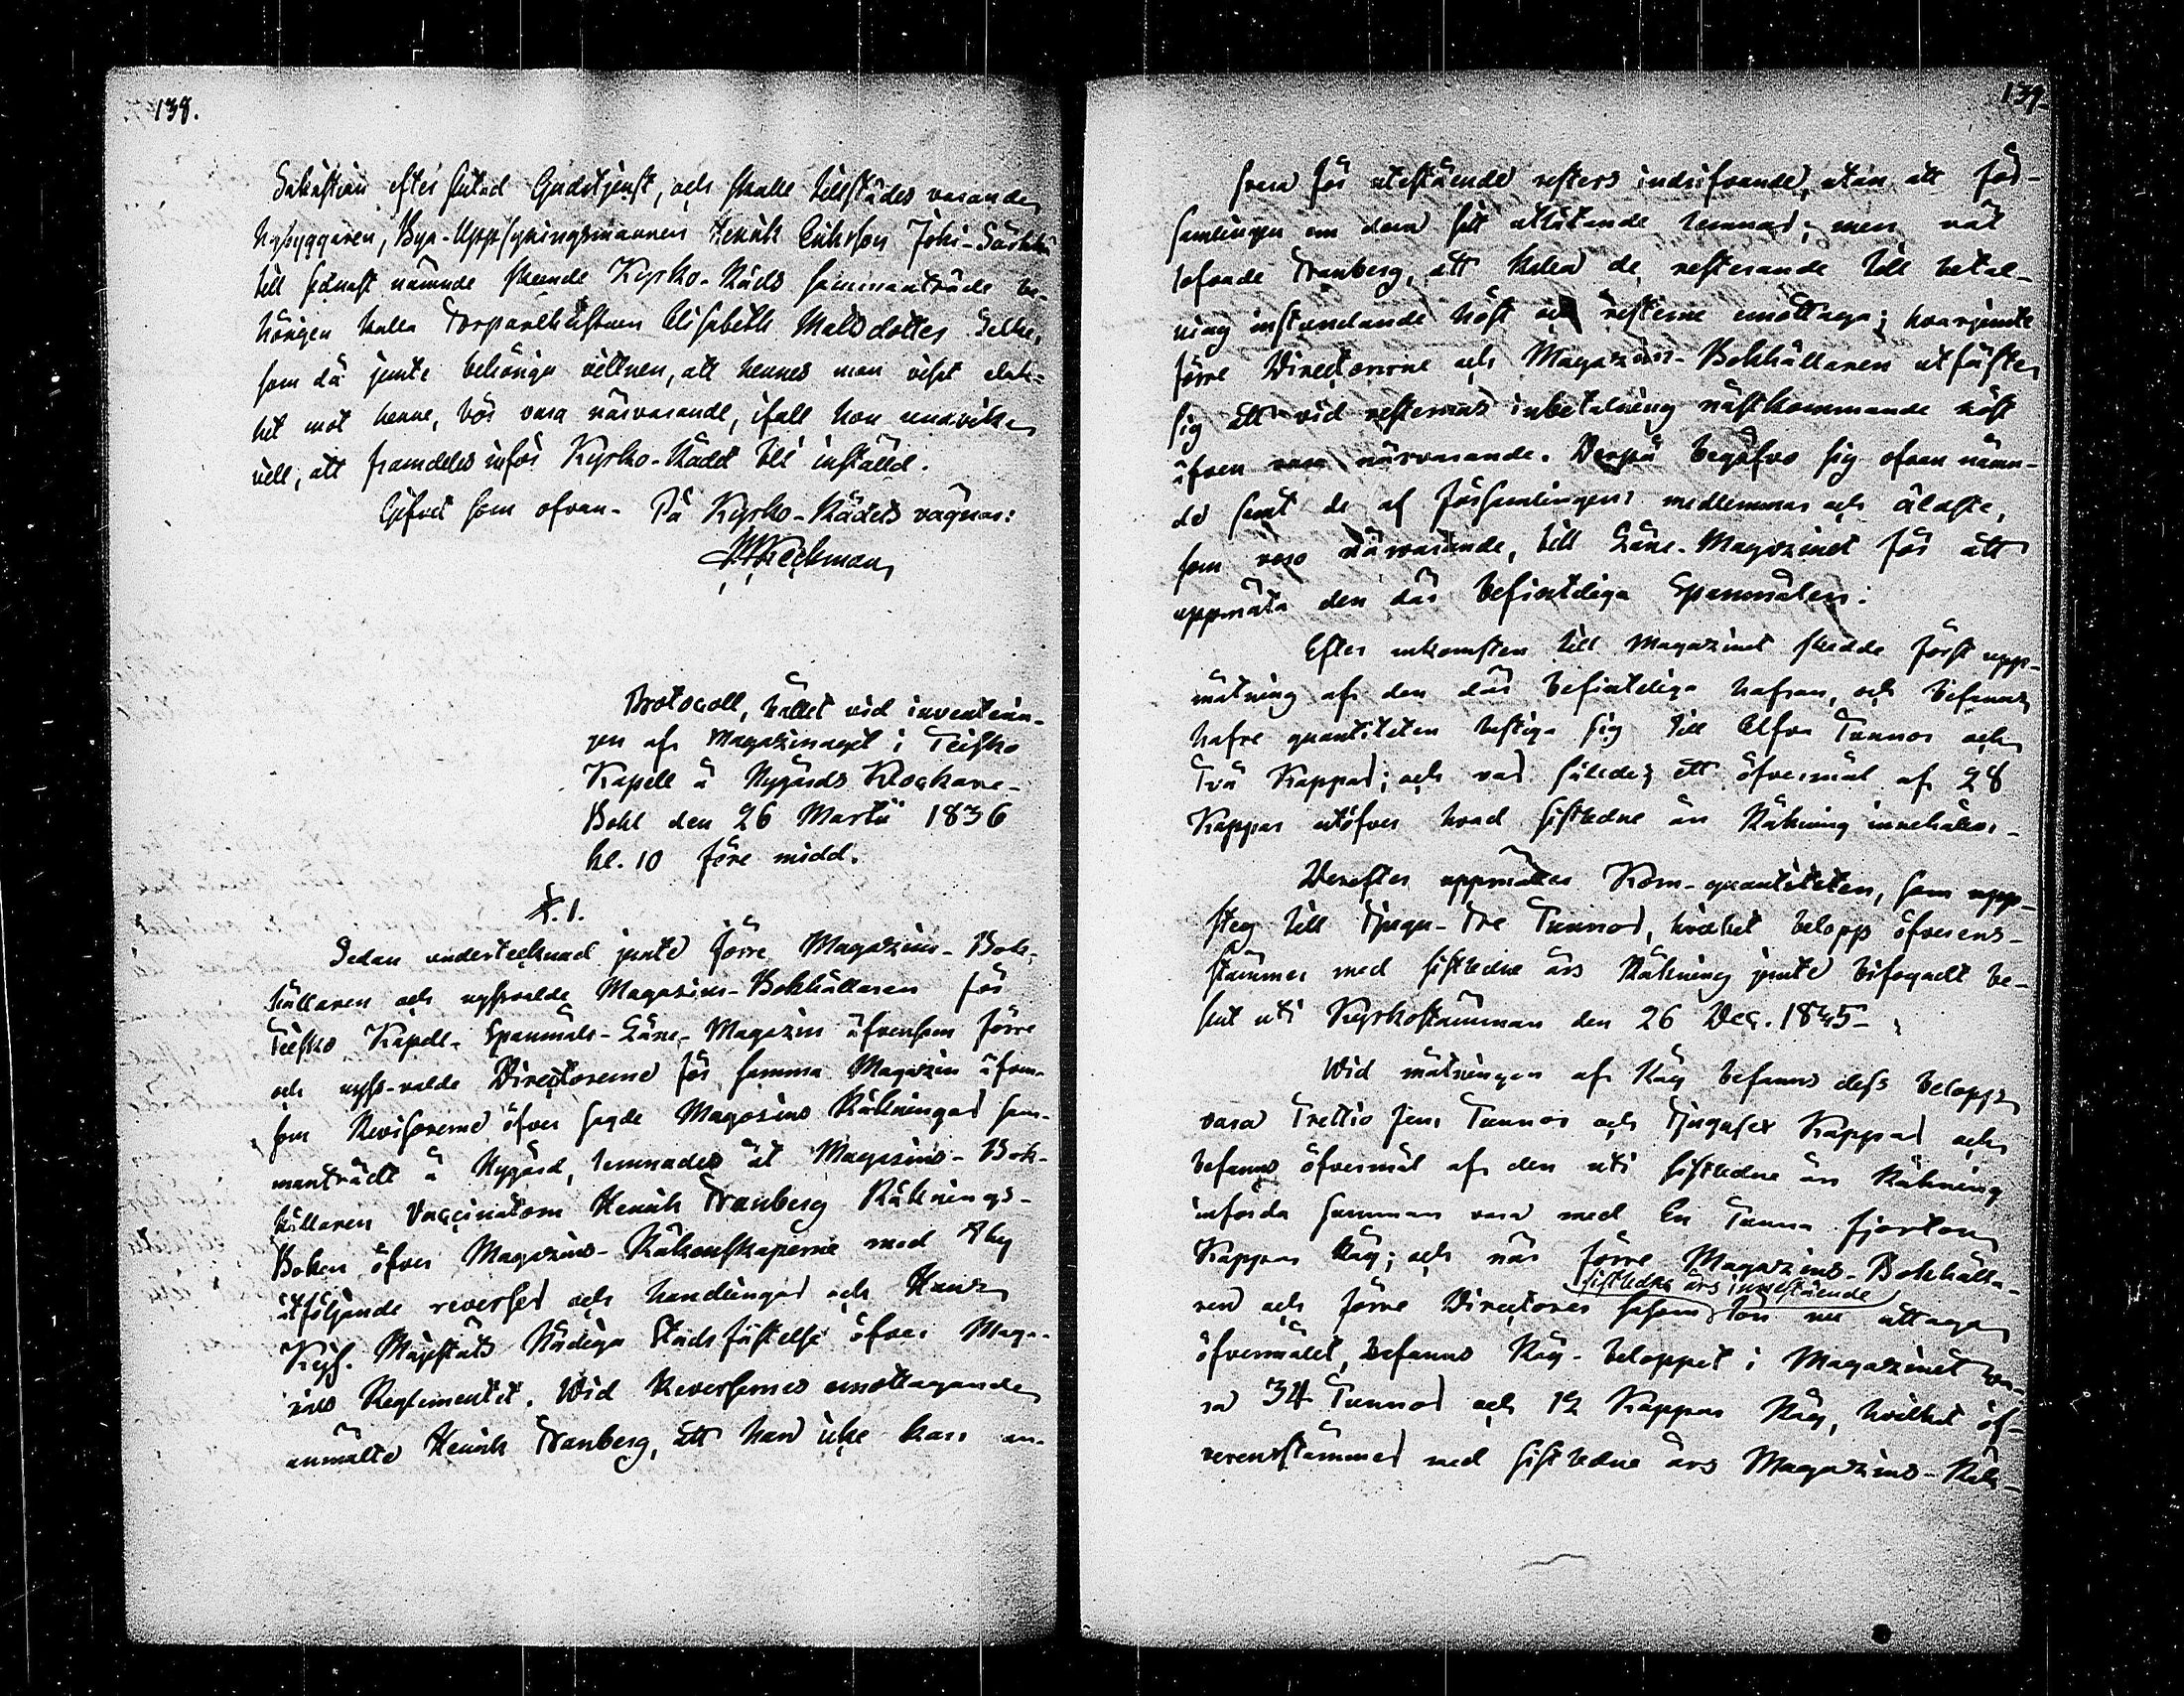 138.
Sakristian efter slutad Gudstjenst, och skulle tillstädes varande
Nybyggaren, Bya-Uppsyningsmannen Henrik Erikson Johi-Särkkä
till sednast nämnde skeende Kyrko-Råds sammanträde be-
hörigen kalla Torparehustrun Elisabeth Matsdotter Selki,
som då jemte behöriga vittnen, att hennes man visat elak-
het mot henne, bör vara närvarande, ifall hon undviker
vill, att framdeles inför Kyrko-Rådet bli inställd.
Gifvet som ofvan. På Kyrko-Rådets vägnar:
Protocoll, hållet vid inventerin-
gen af Magazinaget i Teisko
Kapell å Nygårds Klockare-
Bohl den 26 Martii 1836
kl. 10 före midd.
§. 1.
Sedan undertecknad jemte förre Magazins-Bok-
hållaren och nyssvalde Magazins-Bokhållaren för
Teisko Kapell-Spanmåls-Låne-Magazin äfvensom förre
och nyss-valde Directorerne för samma Magazin äfven-
som Revisorerne öfver sagde Magazins Räkningar sam-
manträdt å Nygård, lemnades åt Magazins-Bok-
hållaren Vaccinatorn Henrik Tranberg Räknings-
Boken öfver Magazins-Räkenskaperne med thy
åtföljande reverser och handlingar och Hans
Kejs. Majestäts Nådiga Stadsfästelse öfver Maga-
zins Reglementet. Wid Reversernes emottagande
anmälte Henrik Tranberg, att han icke kan an-
139.
svara för utestående resters indrifvande, utan att för-
samlingen om dem sitt utlåtande lemnar; men väl
lofvade Tranberg, att kalla de resterande till betal-
ning instundande höst och resterne emottaga; hvarjemte
förre Directorerne och Magazins-Bokhållaren utfäste
sig att vid resternas inbetalning nästkommande höst
äfven vara närvarande. Derpå begåfvo sig ofvan nämn-
de samt de af församlingens medlemmar och äldste,
som voro närvarande, till Låne-Magazinet för att
uppmäta den där befinteliga Spanmålen.
Efter ankomsten till Magazinet skedde först upp-
mätning af den där befinteliga hafran, och befanns
hafre quantiteten bestiga sig till Elfva Tunnor och
Två Kappar; och var således ett öfvermål af 28
Kappar utöfver hvad sistledne års Räkning innehåller.
Derefter uppmättes Korn-quantiteten, som upp-
steg till Tjugu-tre Tunnor, hvilket belopp öfverens-
stämmer med sistledne års Räkning jemte bifogadt be-
slut uti Kyrkostämman den 26 Dec. 1835.
Wid mätningen af Råg befanns dess belopp
vara Trettio fem Tunnor och Tjugusex Kappar och
befanns öfvermål af den uti sistledne års Räkning
införda summan vara med En Tunna fjorton
Kappar Råg; och när förre Magazins-Bokhålla-
sistledne års innestående
ren och förre Directorer såsom lön nu uttaga
öfvermålet, befanns Råg-beloppet i Magazinet va-
ra 34 Tunnor och 12 Kappar Råg, hvilket öf-
verensstämmer med sistledne års Magazins-Räk-